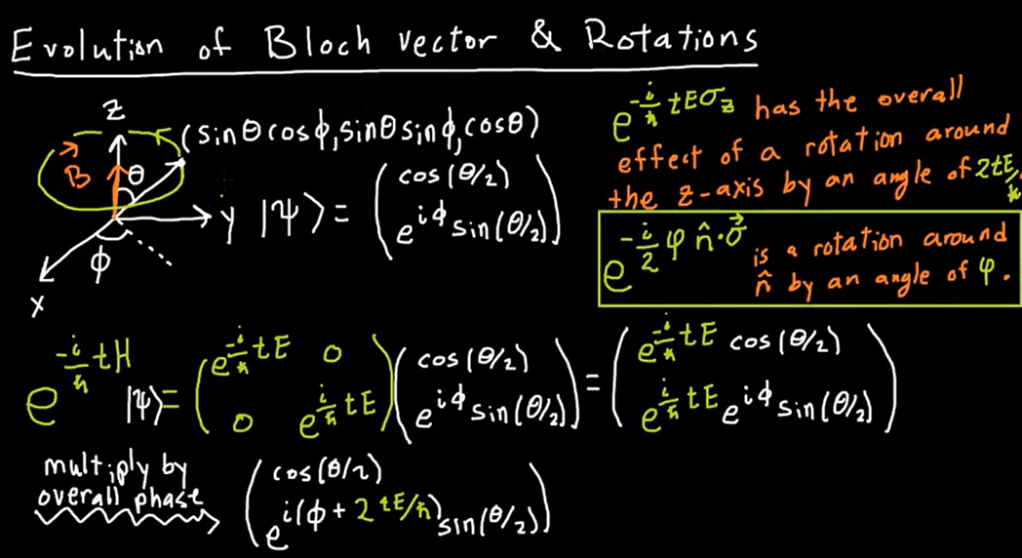 Evolution of Bloch vector & Rotations
z
(sinθcosϕ,sinθsinϕ,cosθ)
B θ
y |ψ⟩ = ( cos(θ/2)
e^{iϕ} sin(θ/2) )
ϕ
x
e^{-i/ħ tEσ_z} has the overall
effect of a rotation around
the z-axis by an angle of 2tE/ħ
e^{-i/2 φ n̂·σ⃗} is a rotation around
n̂ by an angle of φ.
e^{-i/ħ tH} |ψ⟩ = ( e^{-i/ħ tE} 0 ; 0 e^{i/ħ tE} ) ( cos(θ/2) ; e^{iϕ} sin(θ/2) ) = ( e^{-i/ħ tE} cos(θ/2) ; e^{i/ħ tE} e^{iϕ} sin(θ/2) )
multiply by
overall phase
( cos(θ/2)
e^{i(ϕ + 2tE/ħ)} sin(θ/2) )